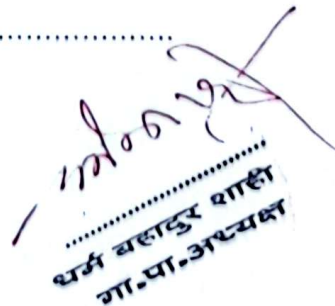 धर्म बहादुर शाही
गा.पा.अध्यक्ष